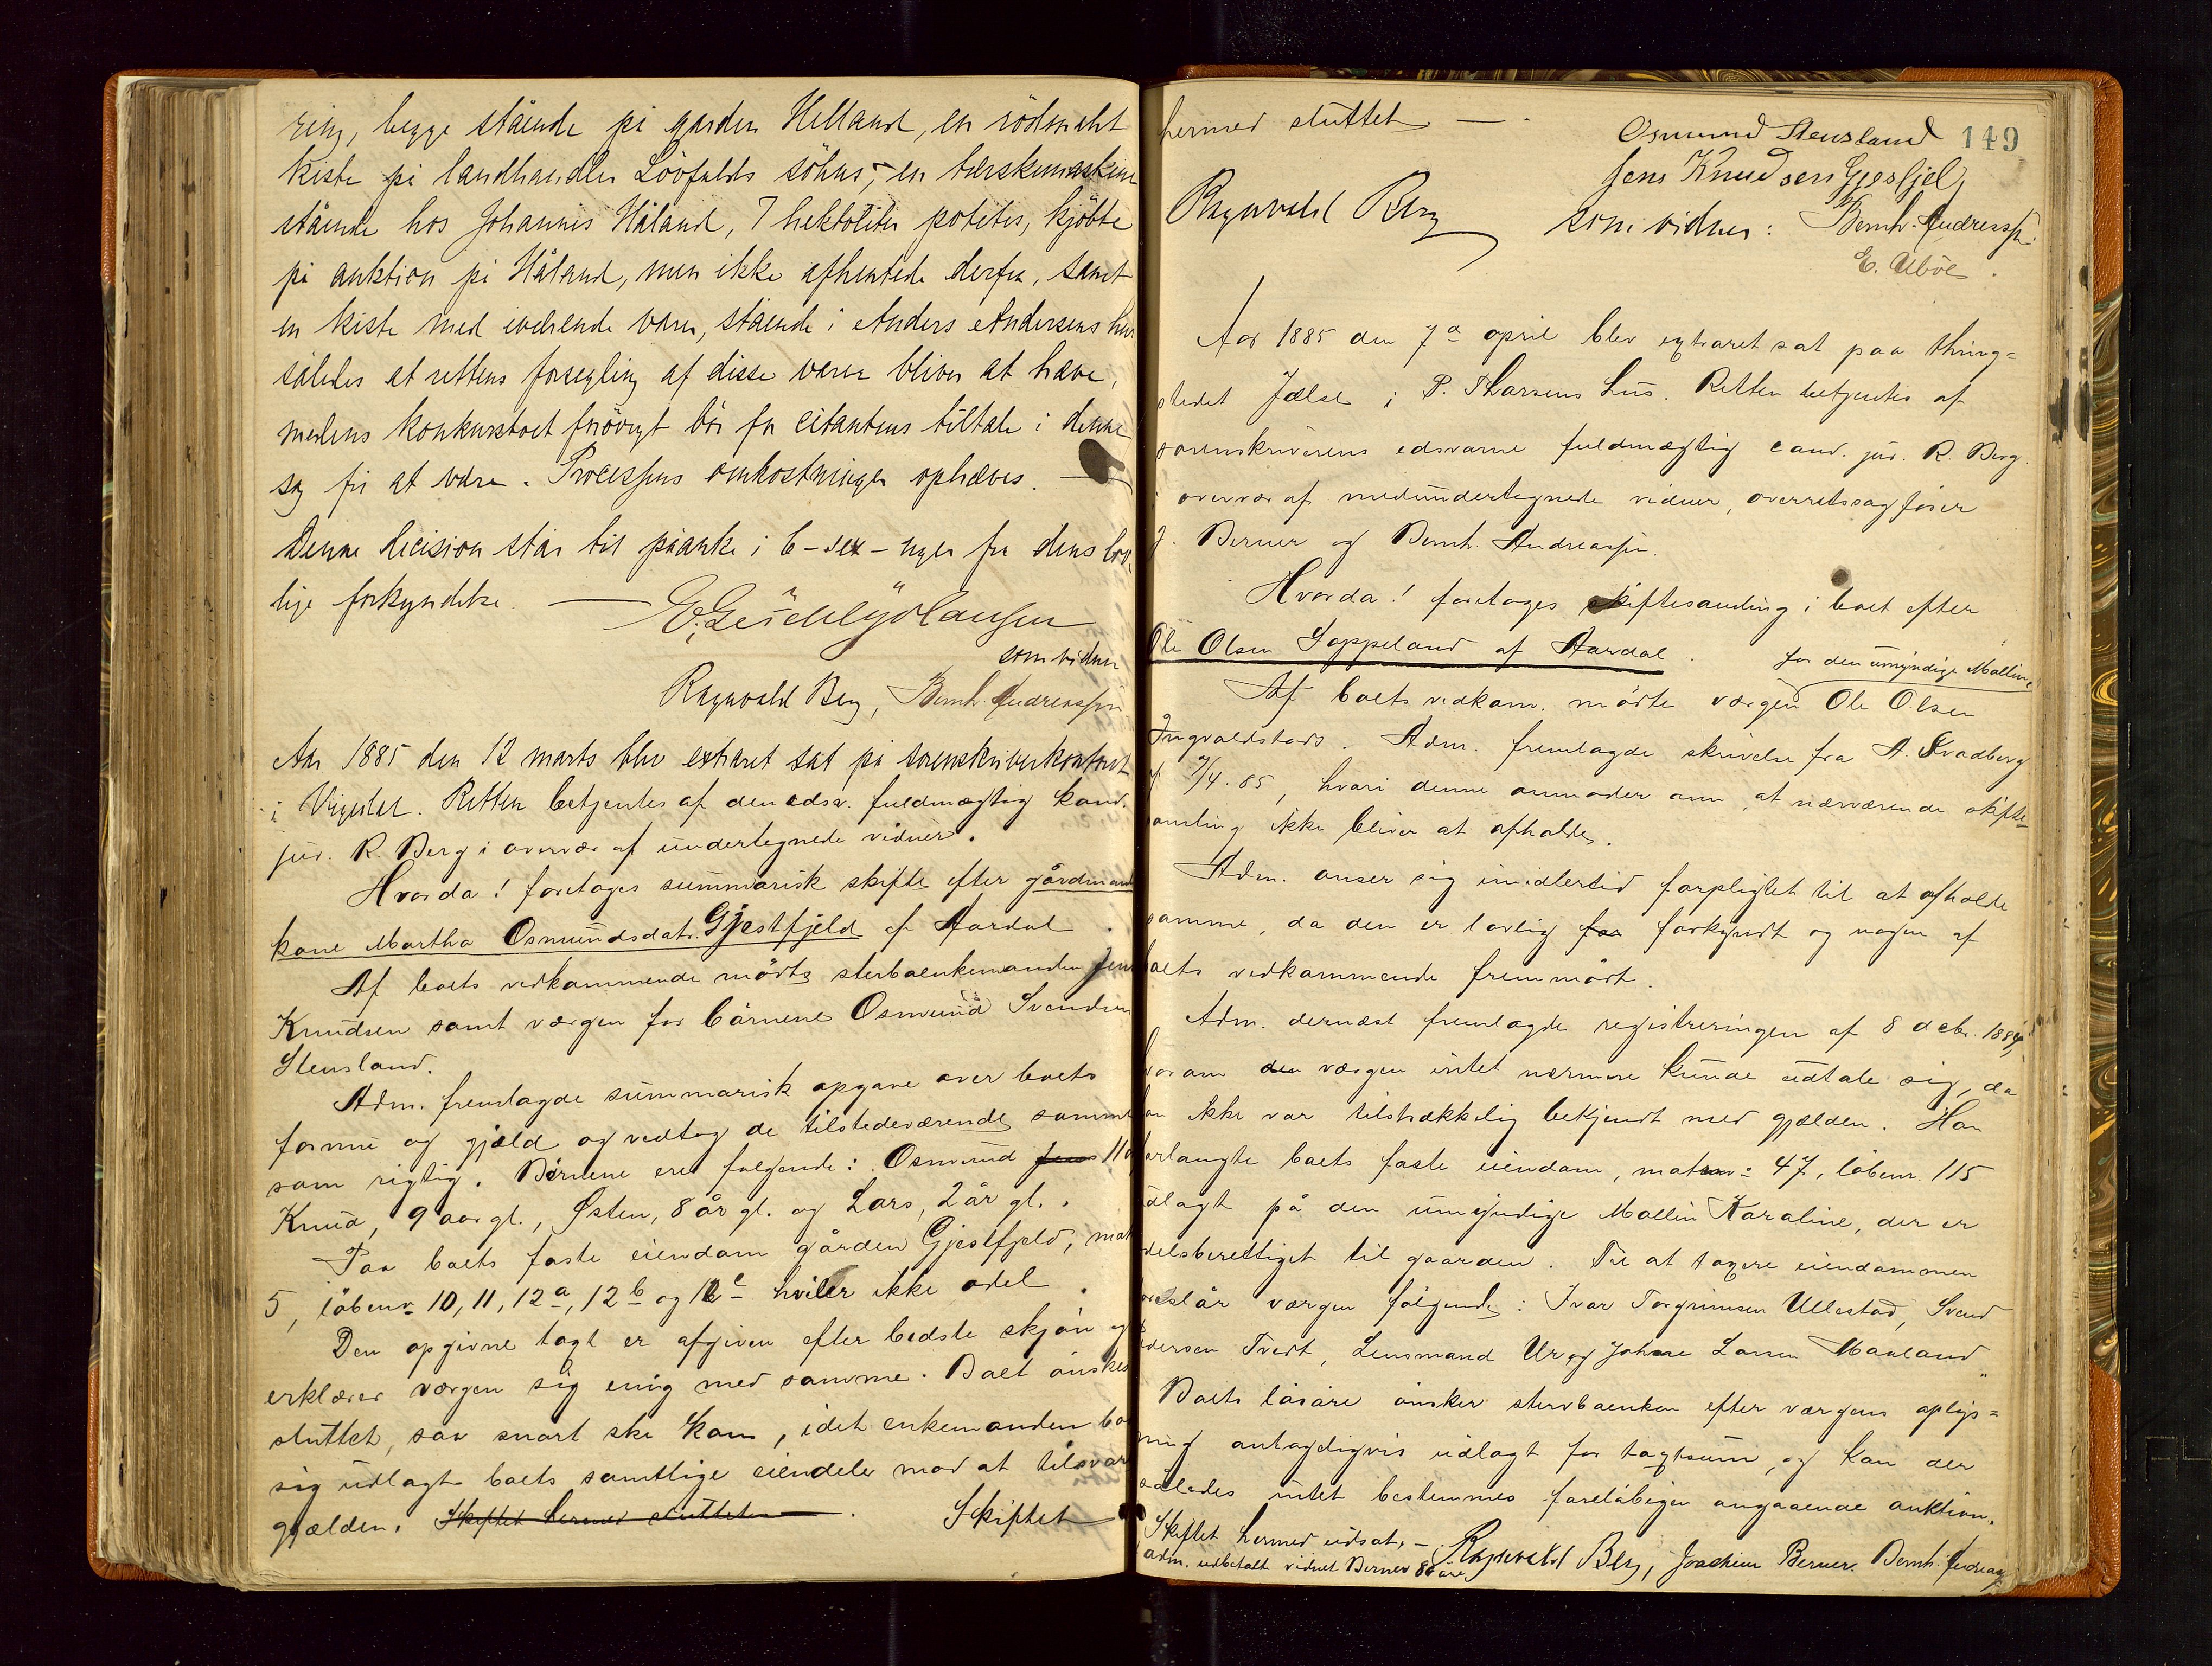 ring, begge stående på garden Helland, en rödmalt
kiste på landhandler Lövfalds söhus, en tærskemaskine
stående hos Johannes Håland, 7 hektoliter poteter, kjöbte
på auktion på Håland, men ikke afhentede derfra, samt
en kiste med værende varer, stående i Anders Andersens hus
således at rettens forsegling af disse varer bliver at hæve,
medens konkursboet forövrigt bör for citantens tiltale i denne
sag fri at være. Processens omkostninger ophæves. —
Denne decision står til påanke i 6 - sex - uger fra dens lov,
lige forkyndelse. —
som vidner
Ragnvald Berg, Bernh. Andreassen
Aar 1885 den 12 marts blev extraret sat på sorenskriverkontoret
i Vigestad. Retten betjentes af den edsv. fuldmægtig kand.
jur. R. Berg i overvær af undertegnede vidner.
Hvorda! foretoges summarisk skifte efter gårdmand
kone Martha Osmundsdatr. Gjestfjeld af Aardal.
Af boets vedkommende mödte sterboenkemanden Jens
Knudsen samt værgen for börnene Osmund Svendsen
Stensland.
Adm. fremlagde summarisk opgave over boets
formue og gjæld og vedtog de tilstedeværende samme
som rigtig. Börnene ere fölgende: Osmund Jens 11
Knud, 9 aar gl., Østen, 8 år gl. og Lars, 2 år gl.
Paa boets faste eiendom gården Gjestfjeld, mat
5, löbenr 10, 11, 12a, 12b og 12c hviler ikke odel.
Den opgivne taxt er afgiven efter bedste skjön og
erklærer værgen sig enig med samme. Boet önskes
sluttet, saa snart ske kan, idet enkemanden
sig udlagt boets samtlige eiendele mod at tilsvare
gjælden. Skiftet hermed sluttet — . Skiftet
149
hermed sluttet — .
Osmund Stensland
Jens Knudsen Gjesfjel
Ragnvald Berg
som vidner: Bernh. Andreassen.
E. Uböe.
Aar 1885 den 7a april blev extraret sat paa thing-
stedet Jælse i P. Tharsens hus. Retten betjentes af
sorenskriverens edsvorne fuldmægtig cand. jur. R. Berg.
i overvær af medundertegnede vidner, overretssagförer
J. Berner og Bernh. Andreassen.
Hvorda! foretoges skiftesamling i boet efter
Ole Olsen Soppeland af Aardal.
for den umyndige Mallin,
Af boets vedkom. mödte værgen Ole Olsen
Ingvaldstad. Adm. fremlagde skrivelse fra A. Svadberg
af 7/4. 85, hvori denne anmoder om, at nærværende skifte-
samling ikke bliver at afholde.
Adm. anser sig imidlertid forpligtet til at afholde
samme, da den er lovlig for forkyndt og nogen af
boets vedkommende fremmödt.
Adm. dernæst fremlagde registreringen af 8 decbr. 1884,
hvorom den værgen intet nærmere kunde udtale sig, da
han ikke var tilstrækkelig bekjendt med gjælden. Han
forlangte boets faste eiendom, matnr: 47, löbenr. 115
udlagt på den umyndige Mallin Karaline, der er
odelsberettiget til gaarden. Til at taxere eiendommen
foreslår værgen fölgende: Ivar Torgrimsen Ullestad, Svend
Pedersen Tvedt, Lensmand Ur og Johne Larsen Maaland
Boets lösöre önsker stervboenken efter værgens oplys-
ning antageligvis udlagt for taxtsum, og kan der
således intet bestemmes foreløbigen angaaende auktion.
Skiftet hermed udsat. — Ragnvald Berg, Joachim Berner. Bernh. Andreas
Adm. udbetalt vidnet Berner 80 öre